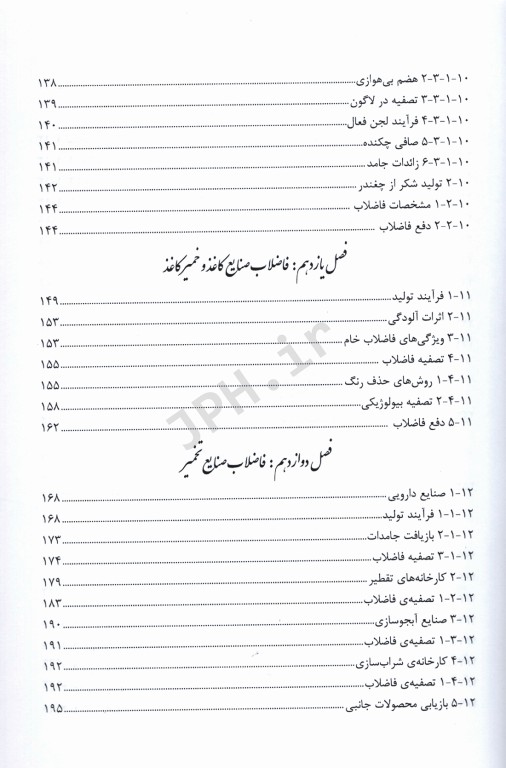 ۱۰-۱-۳-۲ هضم بی‌هوازی ۱۳۸
۱۰-۱-۳-۳ تصفیه در لاگون ۱۳۹
۱۰-۱-۳-۴ فرآیند لجن فعال ۱۴۰
۱۰-۱-۳-۵ صافی چکنده ۱۴۱
۱۰-۱-۳-۶ زائدات جامد ۱۴۱
۱۰-۲ تولید شکر از چغندر ۱۴۲
۱۰-۲-۱ مشخصات فاضلاب ۱۴۴
۱۰-۲-۲ دفع فاضلاب ۱۴۴
فصل یازدهم: فاضلاب صنایع کاغذ و خمیر کاغذ
۱۱-۱ فرآیند تولید ۱۴۹
۱۱-۲ اثرات آلودگی ۱۵۳
۱۱-۳ ویژگی‌های فاضلاب خام ۱۵۳
۱۱-۴ تصفیه فاضلاب ۱۵۵
۱۱-۴-۱ روش‌های حذف رنگ ۱۵۵
۱۱-۴-۲ تصفیه بیولوژیکی ۱۵۸
۱۱-۵ دفع فاضلاب ۱۶۲
فصل دوازدهم: فاضلاب صنایع تخمیر
۱۲-۱ صنایع دارویی ۱۶۸
۱۲-۱-۱ فرآیند تولید ۱۶۸
۱۲-۱-۲ بازیافت جامدات ۱۷۳
۱۲-۱-۳ تصفیه فاضلاب ۱۷۴
۱۲-۲ کارخانه‌های تقطیر ۱۷۹
۱۲-۲-۱ تصفیه‌ی فاضلاب ۱۸۳
۱۲-۳ صنایع آبجوسازی ۱۹۰
۱۲-۳-۱ تصفیه‌ی فاضلاب ۱۹۱
۱۲-۴ کارخانه‌ی شراب‌سازی ۱۹۲
۱۲-۴-۱ تصفیه‌ی فاضلاب ۱۹۲
۱۲-۵ بازیابی محصولات جانبی ۱۹۵
JPH.ir